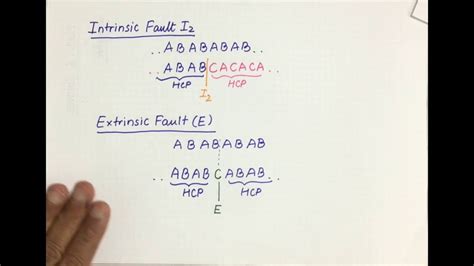 Intrinsic Fault I2
..ABABABAB..
..ABAB|CACACA..
HCP HCP
I2
Extrinsic Fault (E)
ABABABAB
..ABAB C ABAB..
HCP HCP
E